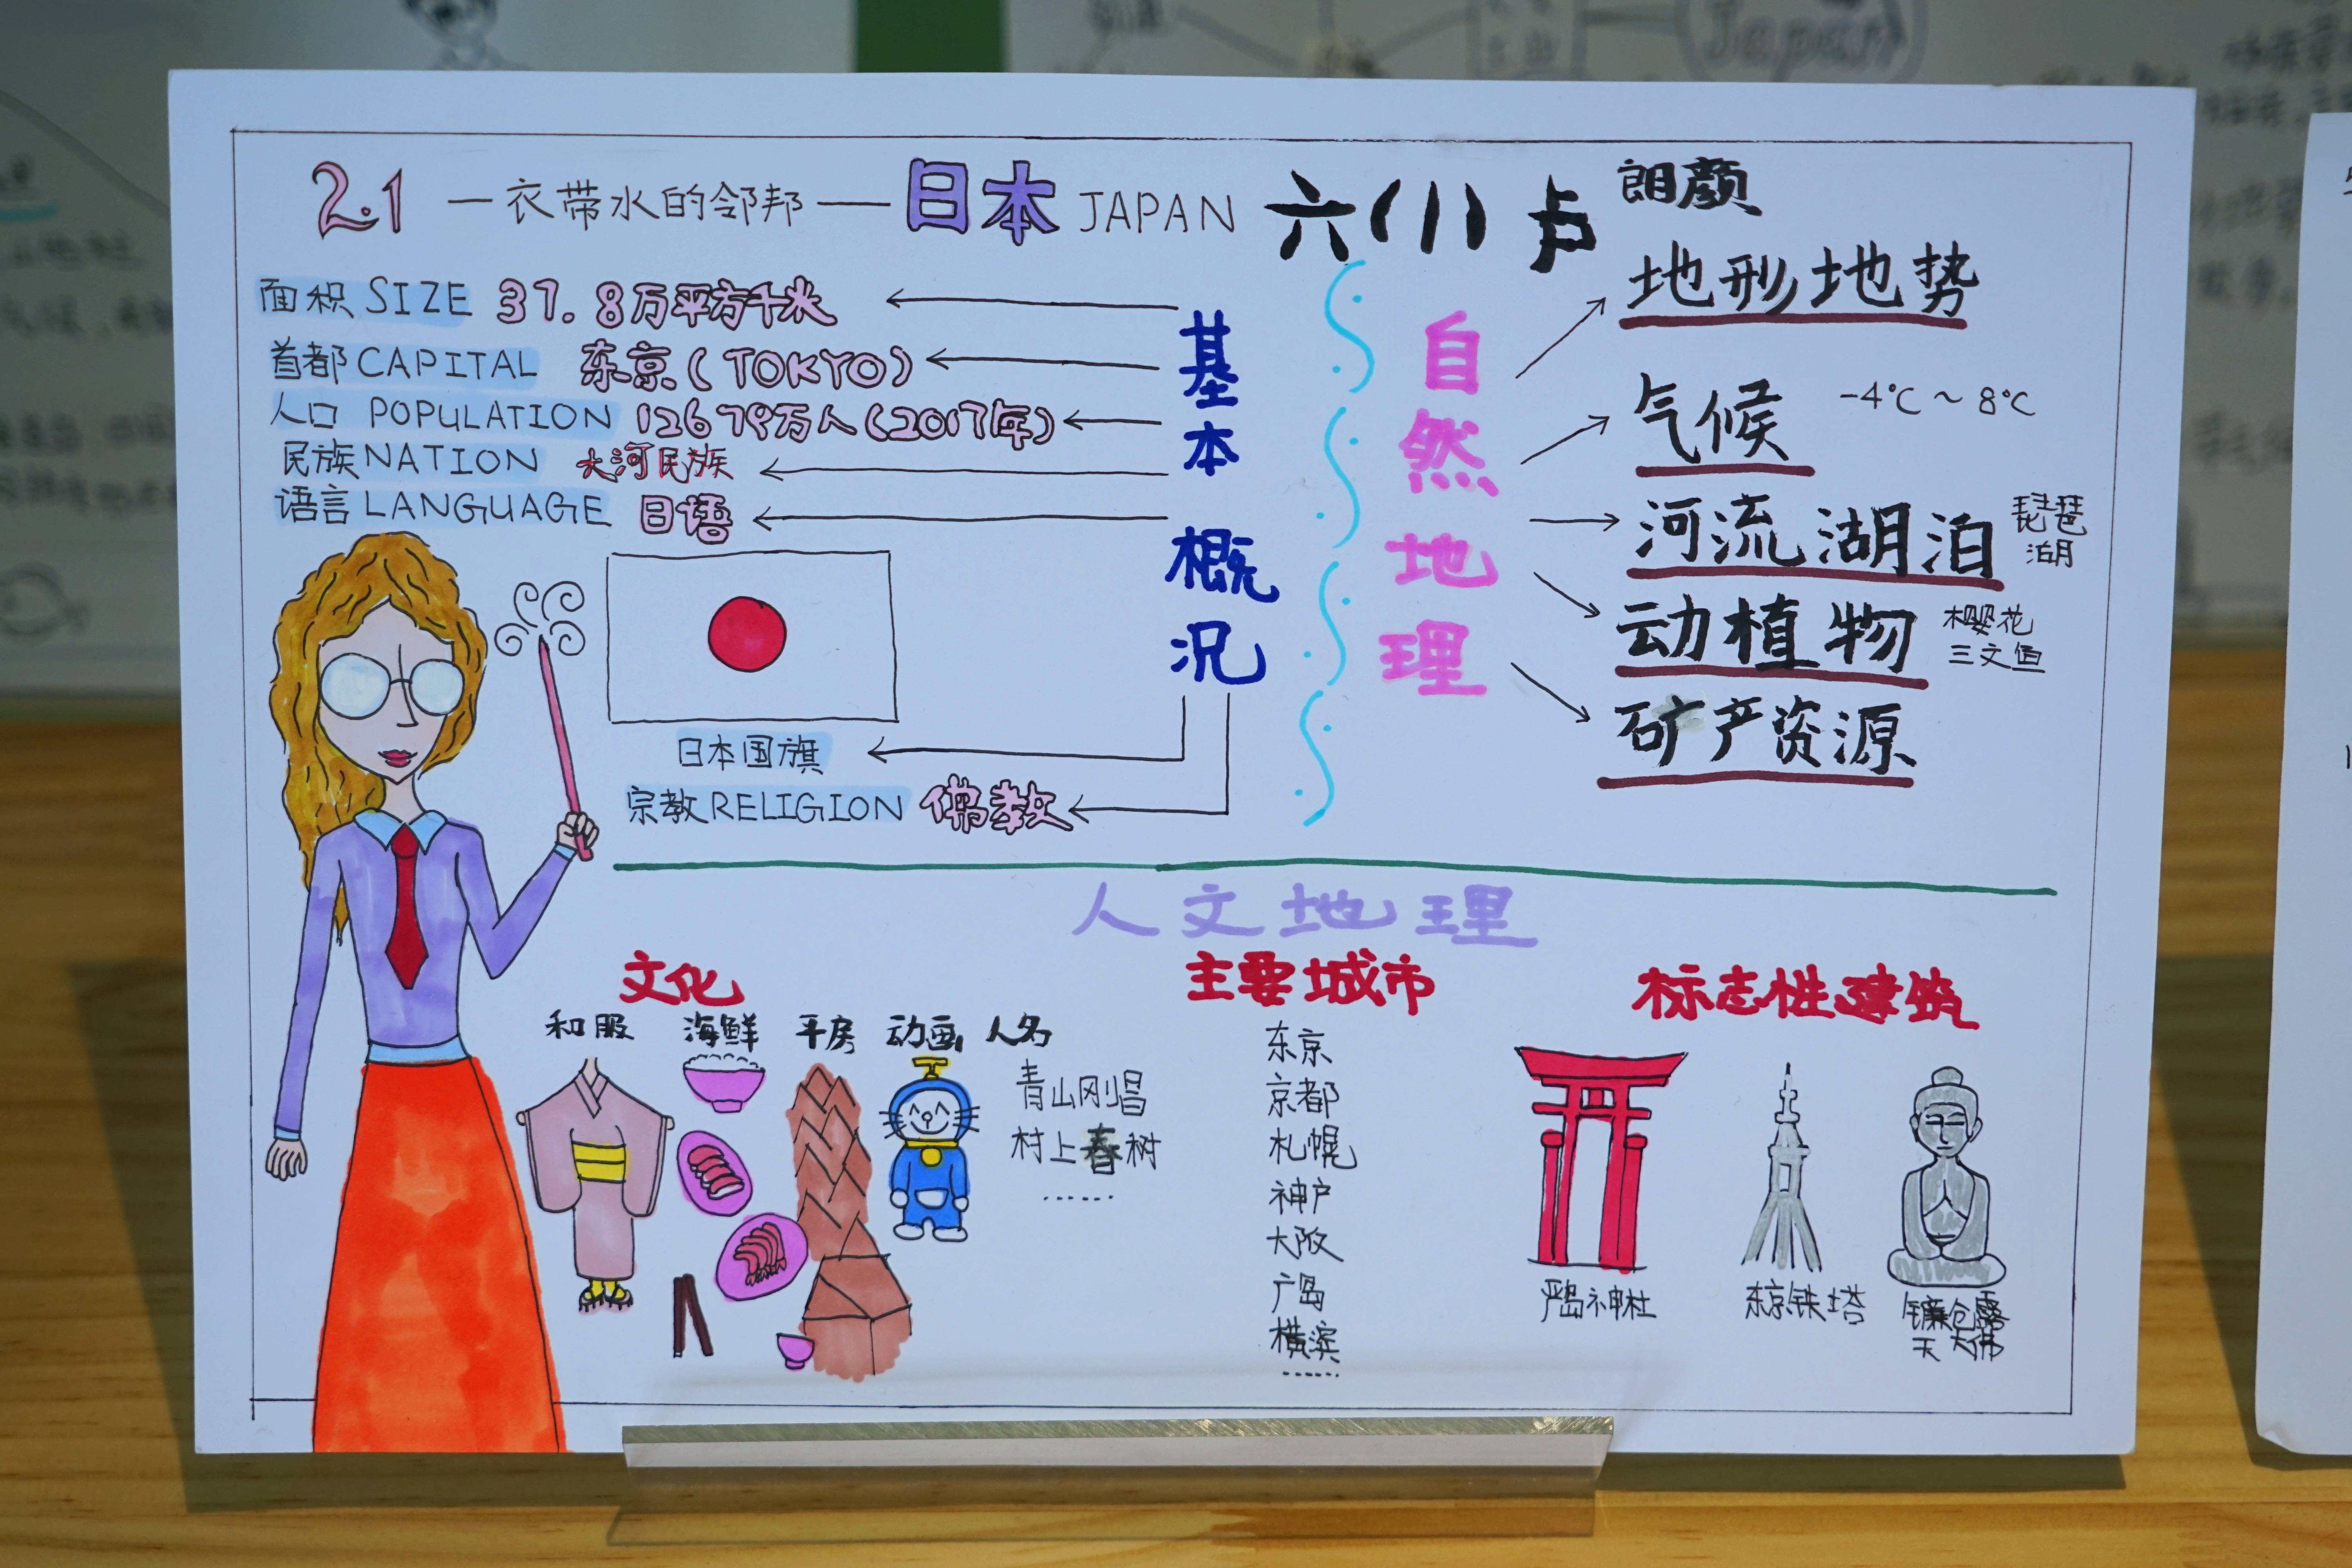 2.1 一衣带水的邻邦——日本 JAPAN 六(1) 卢朗颜
面积 SIZE 37.8万平方千米
首都 CAPITAL 东京(TOKYO)
人口 POPULATION 12679万人(2017年)
民族 NATION 大河民族
语言 LANGUAGE 日语
日本国旗
宗教 RELIGION 佛教
基本概况
自然地理
地形地势
气候 -4℃~8℃
河流湖泊 琵琶湖
动植物 樱花
三文鱼
矿产资源
人文地理
文化
和服 海鲜 平房 动画 人名
青山刚昌
村上春树
......
主要城市
东京
京都
札幌
神户
大阪
广岛
横滨
......
标志性建筑
严岛神社
东京铁塔
镰仓露
天大佛
Japan